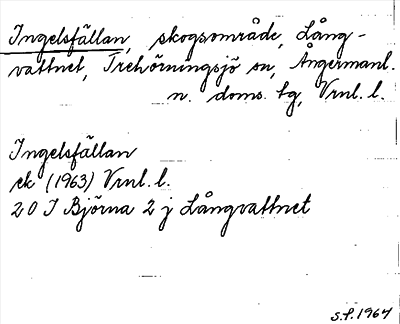 Ingelsfällan, skogsområde, Lång-
vattnet, Trehörningsjö sn, Ångermanl.
n. doms. tg, Vrnl. l.
Ingelsfällan
ek (1963) Vrnl. l.
20 I Björna 2 j Långvattnet
S.P. 1964